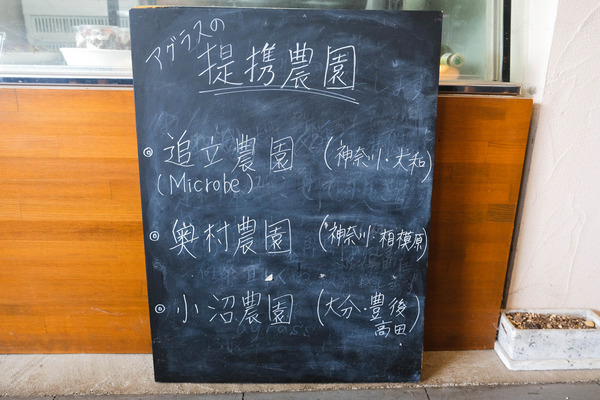 アグラスの
提携農園
◎ 追立農園 (神奈川・大和)
(Microbe)
◎ 奥村農園 (神奈川・相模原)
◎ 小沼農園 (大分・豊後
高田)